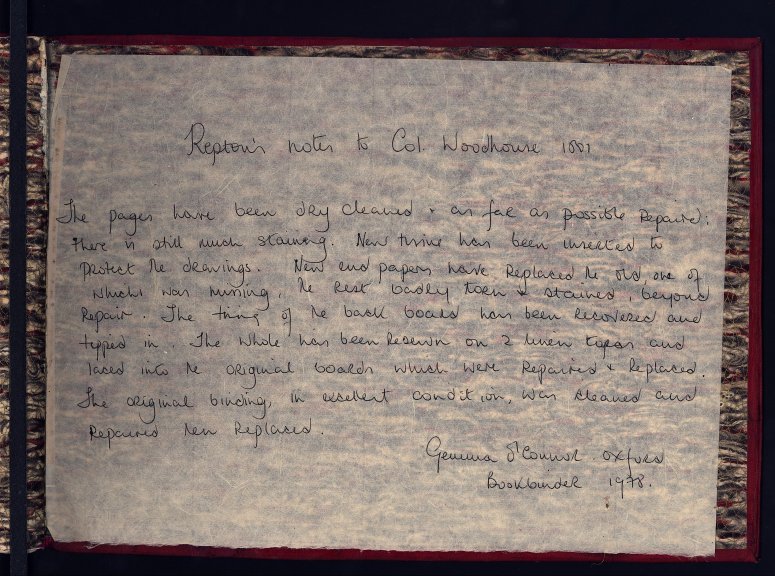 Repton's notes to Col. Woodhouse 1801
The pages have been dry cleaned & as far as possible repaired.
There is still much staining. New tissue has been inserted to
protect the drawings. New end papers have replaced the old, one of
which was missing, the rest badly torn & stained, beyond
repair. The lining of the back board has been recovered and
tipped in. The whole has been resewn on 2 linen tapes and
laced into the original boards which were repaired & replaced.
The original binding, in excellent condition, was cleaned and
repaired then replaced.
Gemma O'Connor. Oxford
Bookbinder 1978.